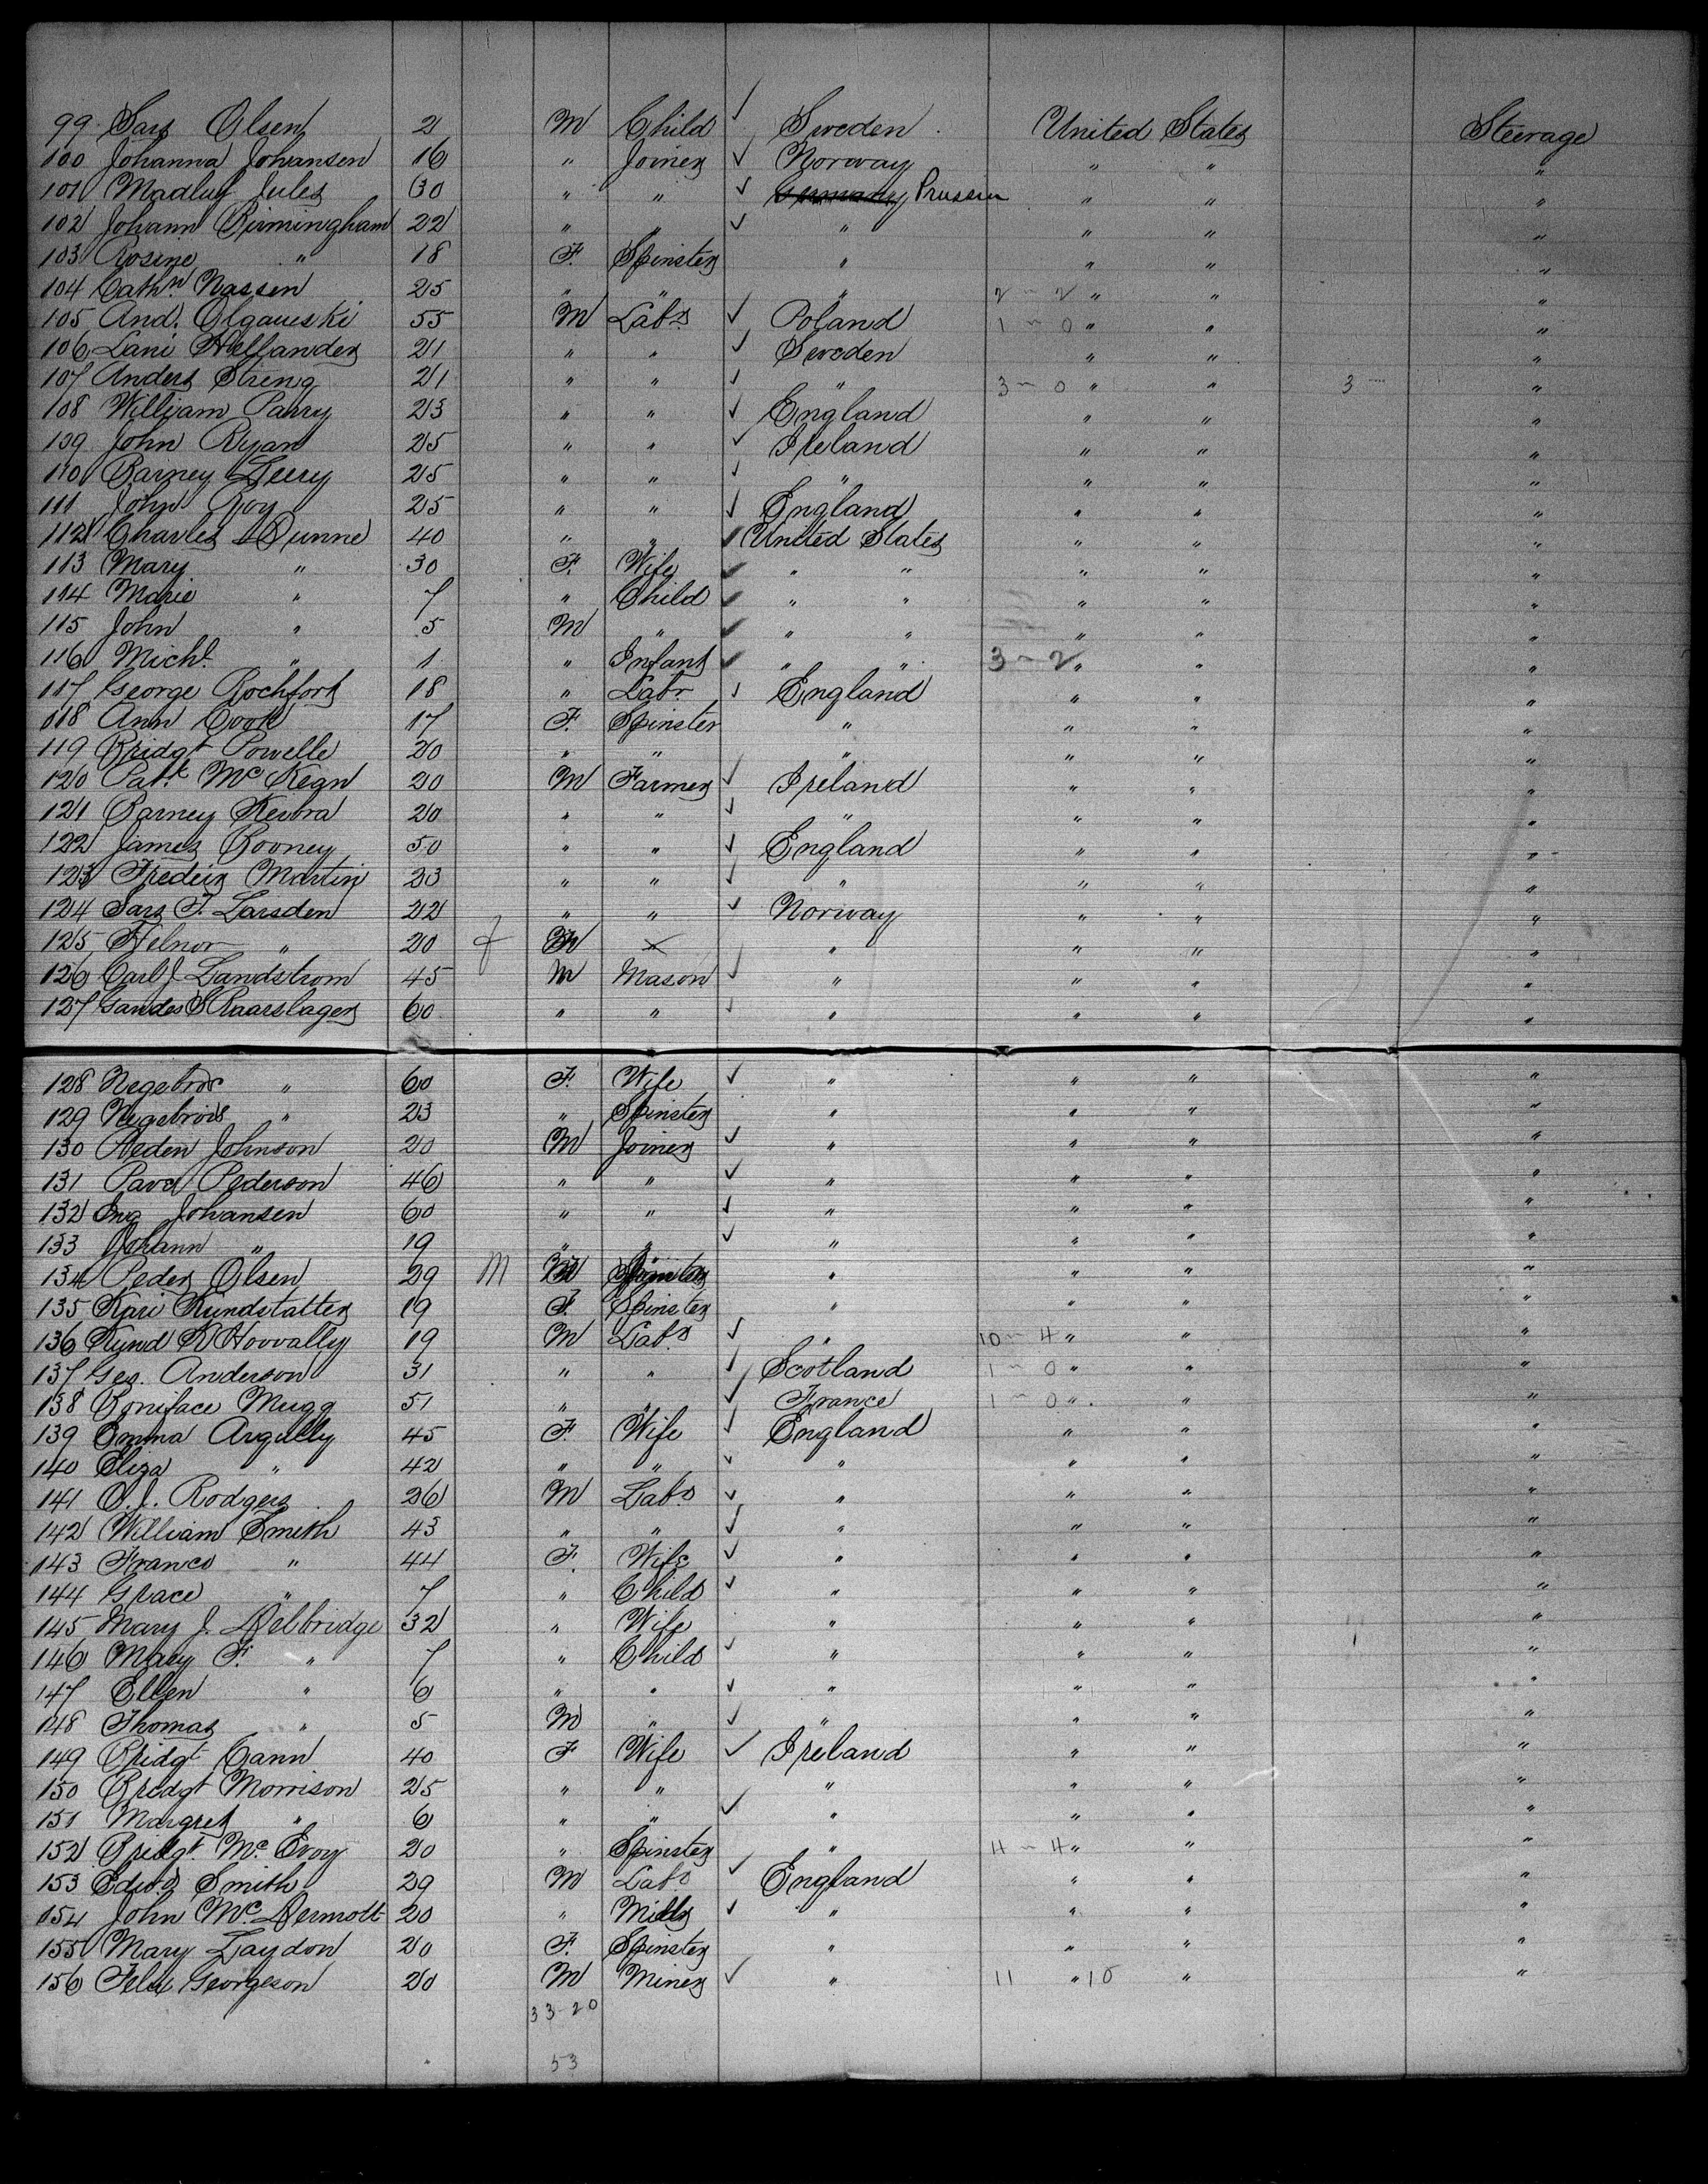 99 Lars Olsen 2 M Child ✓ Sweden United States Steerage
100 Johanna Johansen 16 " Joiner ✓ Norway " " "
101 Madluf Jules 30 " " ✓ Germany Prussia " " "
102 Johann Birmingham 22 " " ✓ " " " "
103 Rosine " 18 F. Spinster " " " "
104 Cathn Nassen 25 " " " 2 - 2 " " "
105 And. Olgaueski 55 M Labr ✓ Poland 1 - 0 " " "
106 Lani Hellander 21 " " ✓ Sweden " " "
107 Anders Streng 21 " " ✓ " 3 - 0 " " 3 "
108 William Parry 23 " " ✓ England " " "
109 John Ryan 25 " " ✓ Ireland " " "
110 Barney Leery 25 " " ✓ " " " "
111 John Roy 25 " " ✓ England " " "
112 Charles Dunne 40 " " ✓ United States " " "
113 Mary " 30 F. Wife ✓ " " " " "
114 Marie " 7 " Child ✓ " " " " "
115 John " 5 M " ✓ " " " " "
116 Michl. " 1 " Infant ✓ " " 3 - 2 " " "
117 George Rochfort 18 " Labr ✓ England " " "
118 Ann Cook 17 F. Spinster " " " "
119 Bridgt Powelle 20 " " " " " "
120 Patk Mc Kegn 20 M Farmer ✓ Ireland " " "
121 Barney Kevora 20 " " ✓ " " " "
122 James Rooney 50 " " ✓ England " " "
123 Frederz Martin 23 " " ✓ " " " "
124 Lars T. Larsden 22 " " ✓ Norway " " "
125 Helnor " 20 f M " " " "
126 Carl J Landstrom 45 M Mason ✓ " " " "
127 Gandes S Raarslager 60 " " ✓ " " " "
128 Negebror " 60 F. Wife ✓ " " " "
129 Negebrois " 23 " Spinster " " " "
130 Peden Johnson 20 M Joiner ✓ " " " "
131 Pavel Pederson 46 " " ✓ " " " "
132 Eng Johansen 60 " " ✓ " " " "
133 Johann " 19 " " ✓ " " " "
134 Peder Olsen 29 M M " " " "
135 Kari Kundstatter 19 F. Spinster " " " "
136 Kynd K Hovvally 19 M Labr ✓ " 10 - 4 " " "
137 Geo. Anderson 31 " " ✓ Scotland 1 - 0 " " "
138 Boniface Mugg 51 " " ✓ France 1 - 0 " " "
139 Emma Argully 45 F. Wife ✓ England " " "
140 Eliza " 42 " " ✓ " " " "
141 O. J. Rodgers 26 M Labr ✓ " " " "
142 William Smith 43 " " ✓ " " " "
143 Francs " 44 F. Wife ✓ " " " "
144 Grace " 7 " Child ✓ " " " "
145 Mary J. Delbridge 32 " Wife " " " "
146 Mary F. " 7 " Child ✓ " " " "
147 Ellen " 6 " " ✓ " " " "
148 Thomas " 5 M " ✓ " " " "
149 Bridgt Cann 40 F Wife ✓ Ireland " " "
150 Bredgt Morrison 25 " " " " " "
151 Margret " 6 " " ✓ " " " "
152 Bridgt. Mc. Evoy 20 " Spinster " 4 - 4 " " "
153 Edwd Smith 29 M Labr ✓ England " " "
154 John Mc. Dermott 20 " ✓ " " " "
155 Mary Laydon 20 F. Spinster " " " "
156 Felix Georgeson 20 M Miner ✓ " 11 " 10 " "
33-20
53